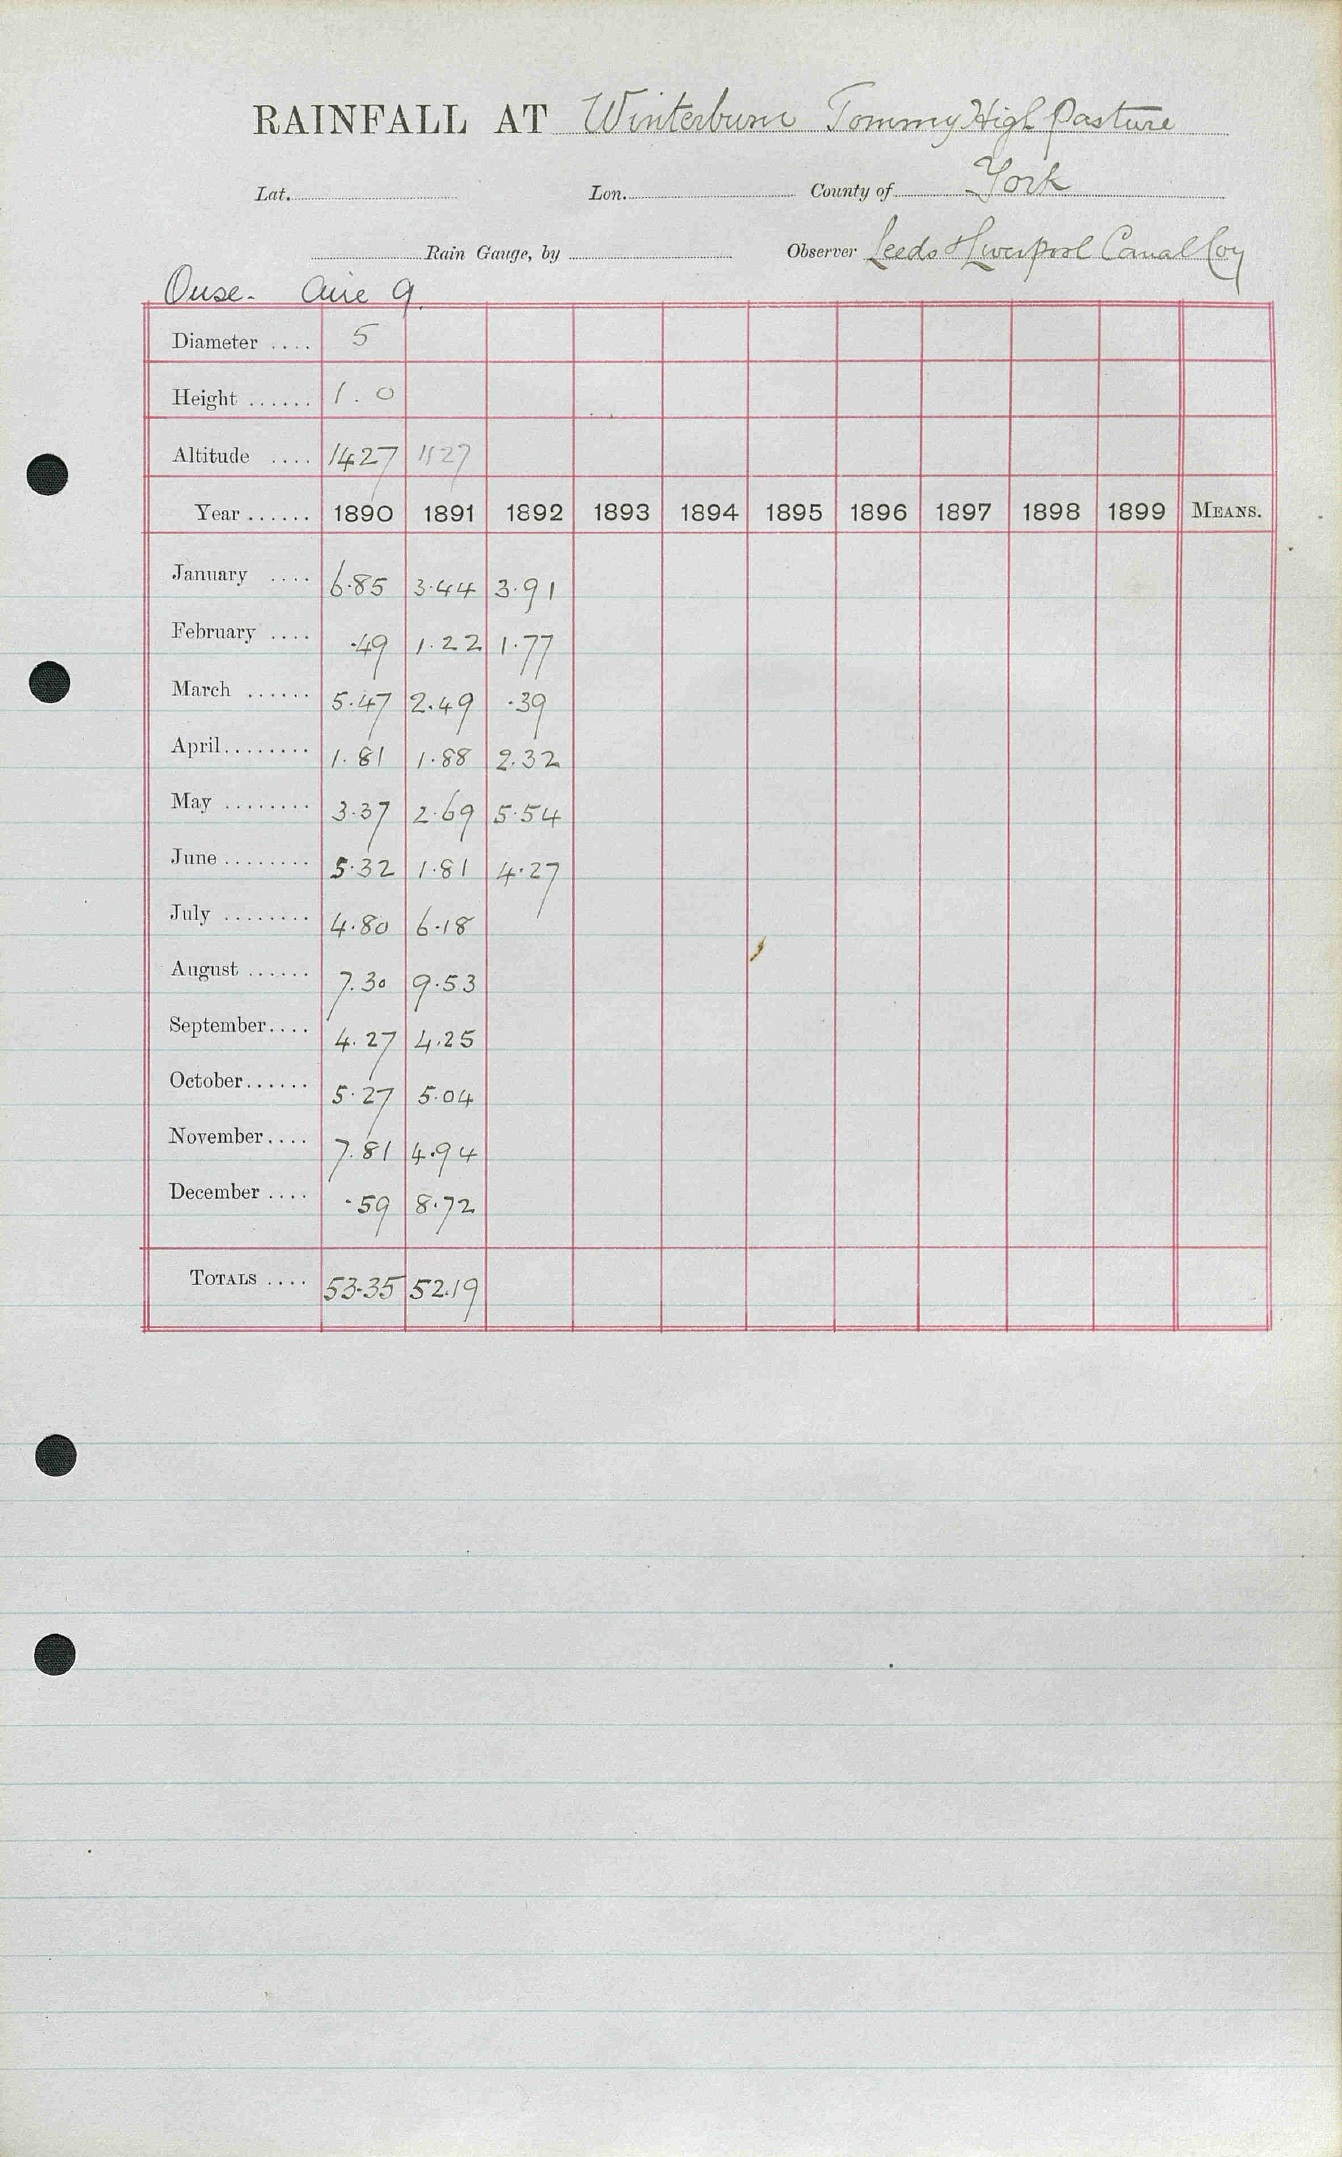 RAINFALL AT Winterburn Tommy High Pasture
Lat. Lon. County of York
Rain Gauge, by Observer Leeds & Liverpool Canal Coy
Ouse. Aire 9.
Diameter .... 5
Height ...... 1.0
Altitude .... 1427 1527
Year ...... 1890 1891 1892 1893 1894 1895 1896 1897 1898 1899 MEANS.
January .... 6.85 3.44 3.91
February .... .49 1.22 1.77
March ...... 5.47 2.49 .39
April........ 1.81 1.88 2.32
May ........ 3.37 2.69 5.54
June ........ 5.32 1.81 4.27
July ........ 4.80 6.18
August ...... 7.30 9.53
September.... 4.27 4.25
October...... 5.27 5.04
November.... 7.81 4.94
December .... .59 8.72
TOTALS .... 53.35 52.19